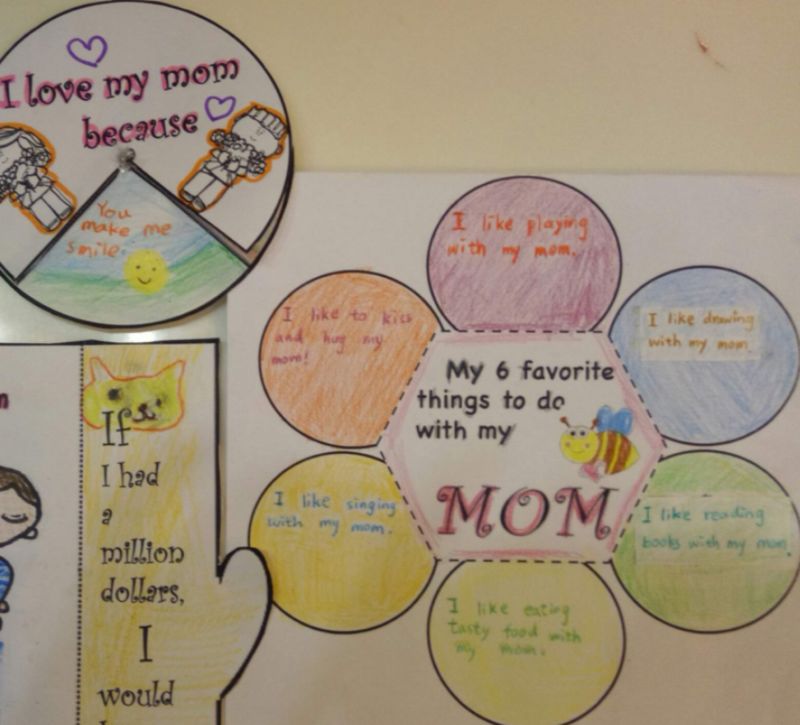 I love my mom
because
You
make me
smile.
I like playing
with my mom.
I like to kiss
and hug my
mom!
I like drawing
with my mom
My 6 favorite
things to do
with my
MOM
I like singing
with my mom.
I like reading
books with my mom.
I like eating
tasty food with
my mom.
If
I had
a
million
dollars,
I
would